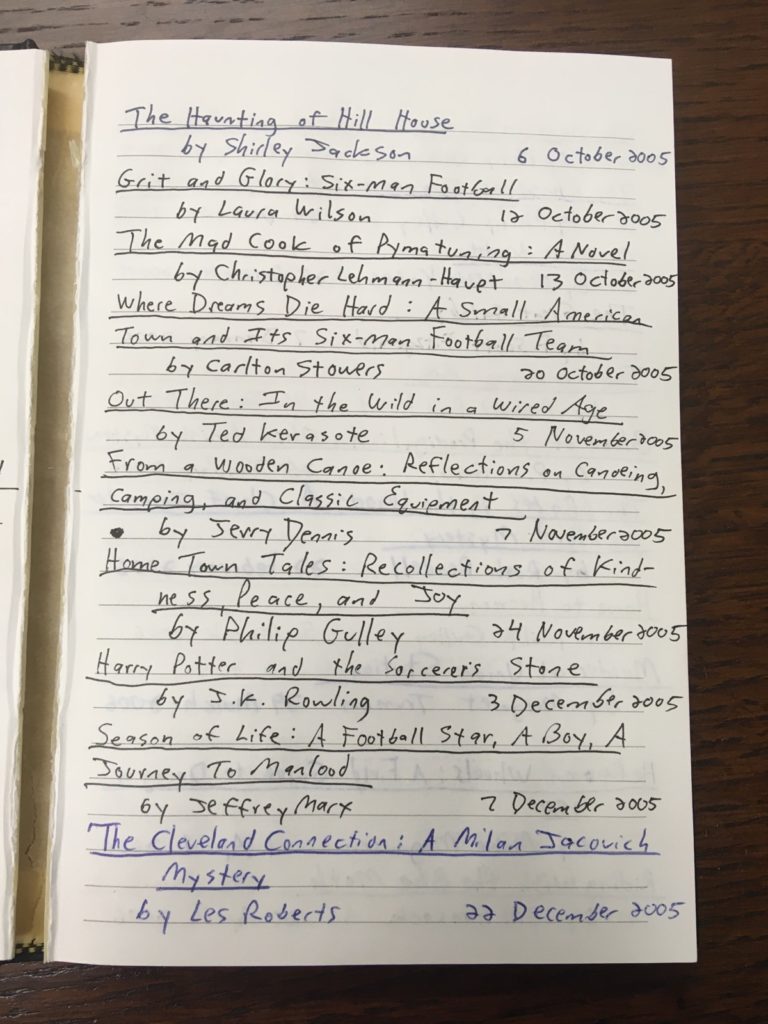 The Haunting of Hill House
by Shirley Jackson 6 October 2005
Grit and Glory: Six-man Football
by Laura Wilson 12 October 2005
The Mad Cook of Pymatuning: A Novel
by Christopher Lehmann-Haupt 13 October 2005
Where Dreams Die Hard: A Small American
Town and Its Six-man Football Team
by Carlton Stowers 20 October 2005
Out There: In the Wild in a Wired Age
by Ted Kerasote 5 November 2005
From a Wooden Canoe: Reflections on Canoeing,
Camping, and Classic Equipment
• by Jerry Dennis 7 November 2005
Home Town Tales: Recollections of Kind-
ness, Peace, and Joy
by Philip Gulley 24 November 2005
Harry Potter and the Sorcerer's Stone
by J.K. Rowling 3 December 2005
Season of Life: A Football Star, A Boy, A
Journey To Manhood
by Jeffrey Marx 7 December 2005
The Cleveland Connection: A Milan Jacovich
Mystery
by Les Roberts 22 December 2005